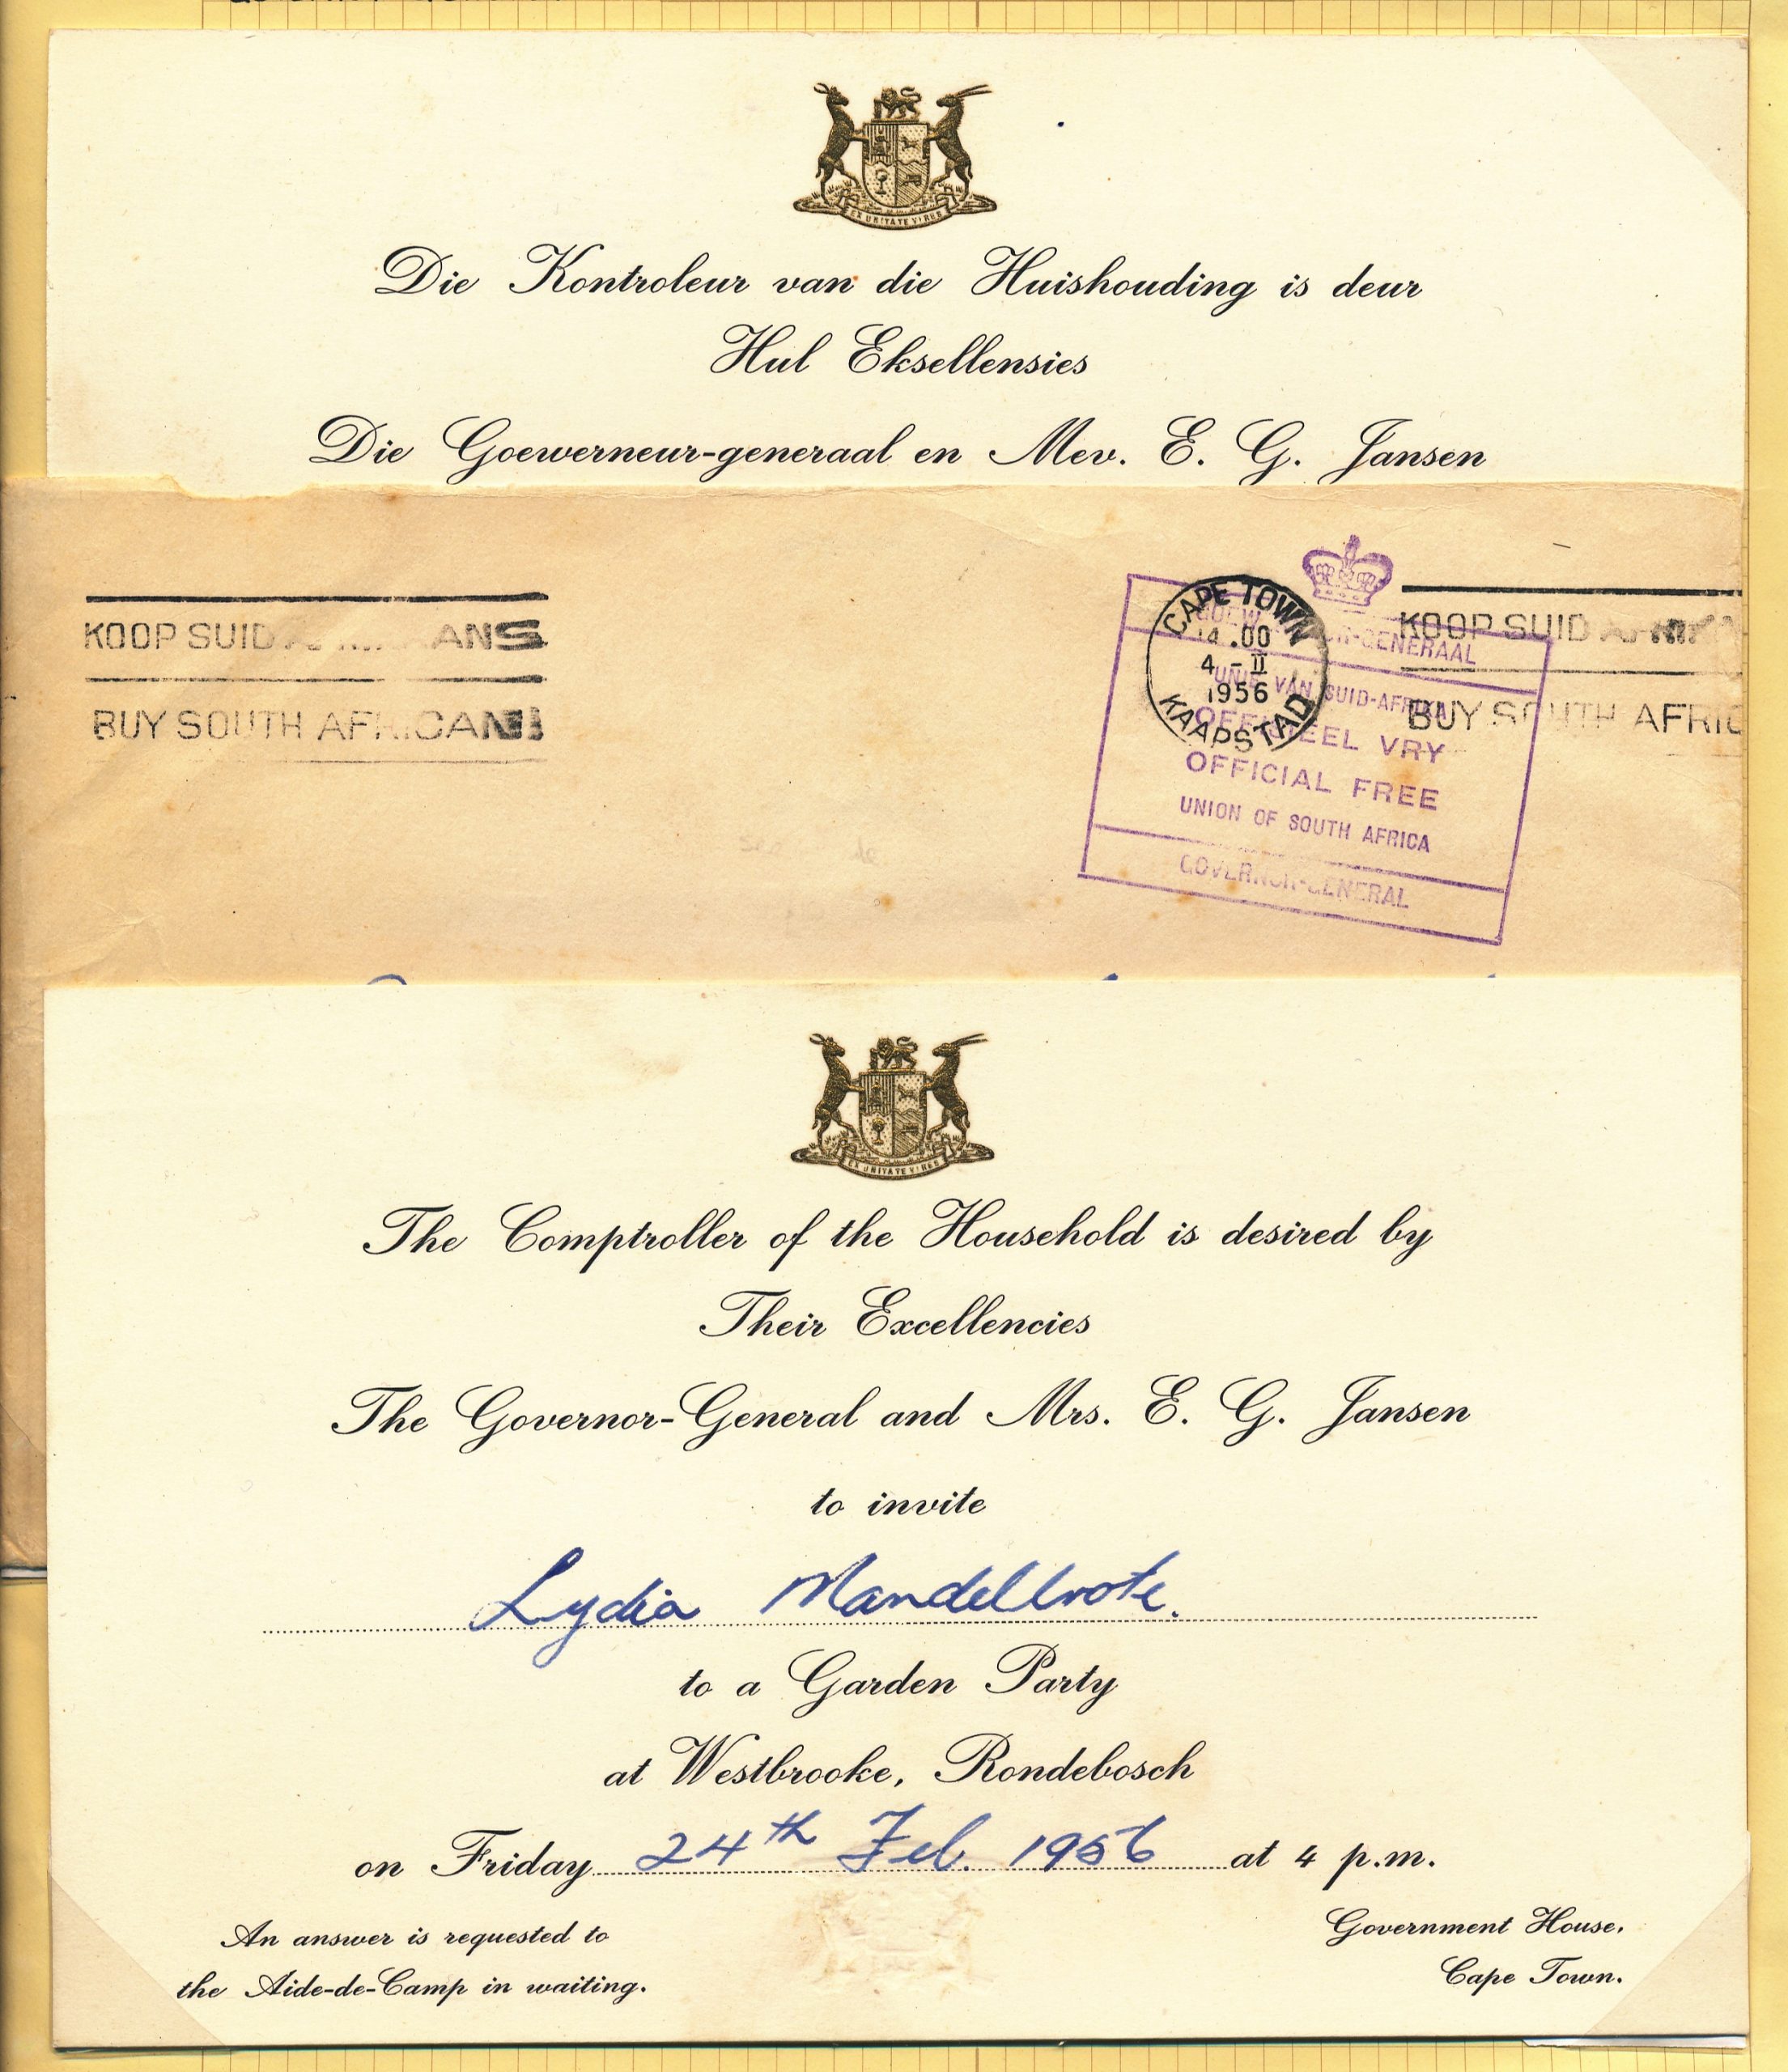 EX UNITATE VIRES
Die Kontroleur van die Huishouding is deur
Hul Eksellensies
Die Goewerneur-generaal en Mev. E. G. Jansen
KOOP SUID
BUY SOUTH AFRICAN
CAPE TOWN
14.00
4 - II
1956
KAAPSTAD
UNIE VAN SUID-AFRIKA
OFFISIEEL VRY
OFFICIAL FREE
UNION OF SOUTH AFRICA
GOVERNOR-GENERAL
KOOP SUID
BUY SOUTH AFRIC
EX UNITATE VIRES
The Comptroller of the Household is desired by
Their Excellencies
The Governor-General and Mrs. E. G. Jansen
to invite
Lydia Mandelbrote.
to a Garden Party
at Westbrooke, Rondebosch
on Friday 24th Feb. 1956 at 4 p.m.
An answer is requested to
the Aide-de-Camp in waiting.
Government House,
Cape Town.